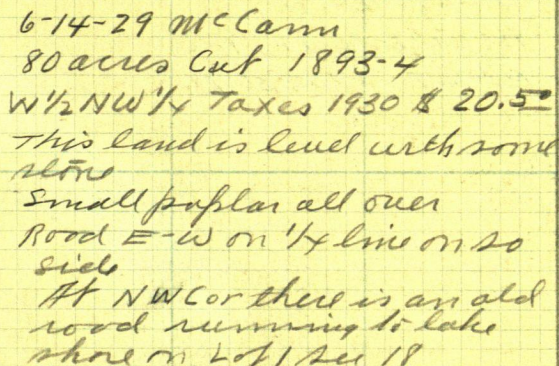 6-14-29 McCann
80 acres Cut 1893-4
W 1/2 NW 1/4 Taxes 1930 $ 20.50
This land is level with some
stone
Small poplar all over
Road E-W on 1/4 line on so
side
At NW Cor there is an old
road running to lake
shore on Lot 1 Sec 18